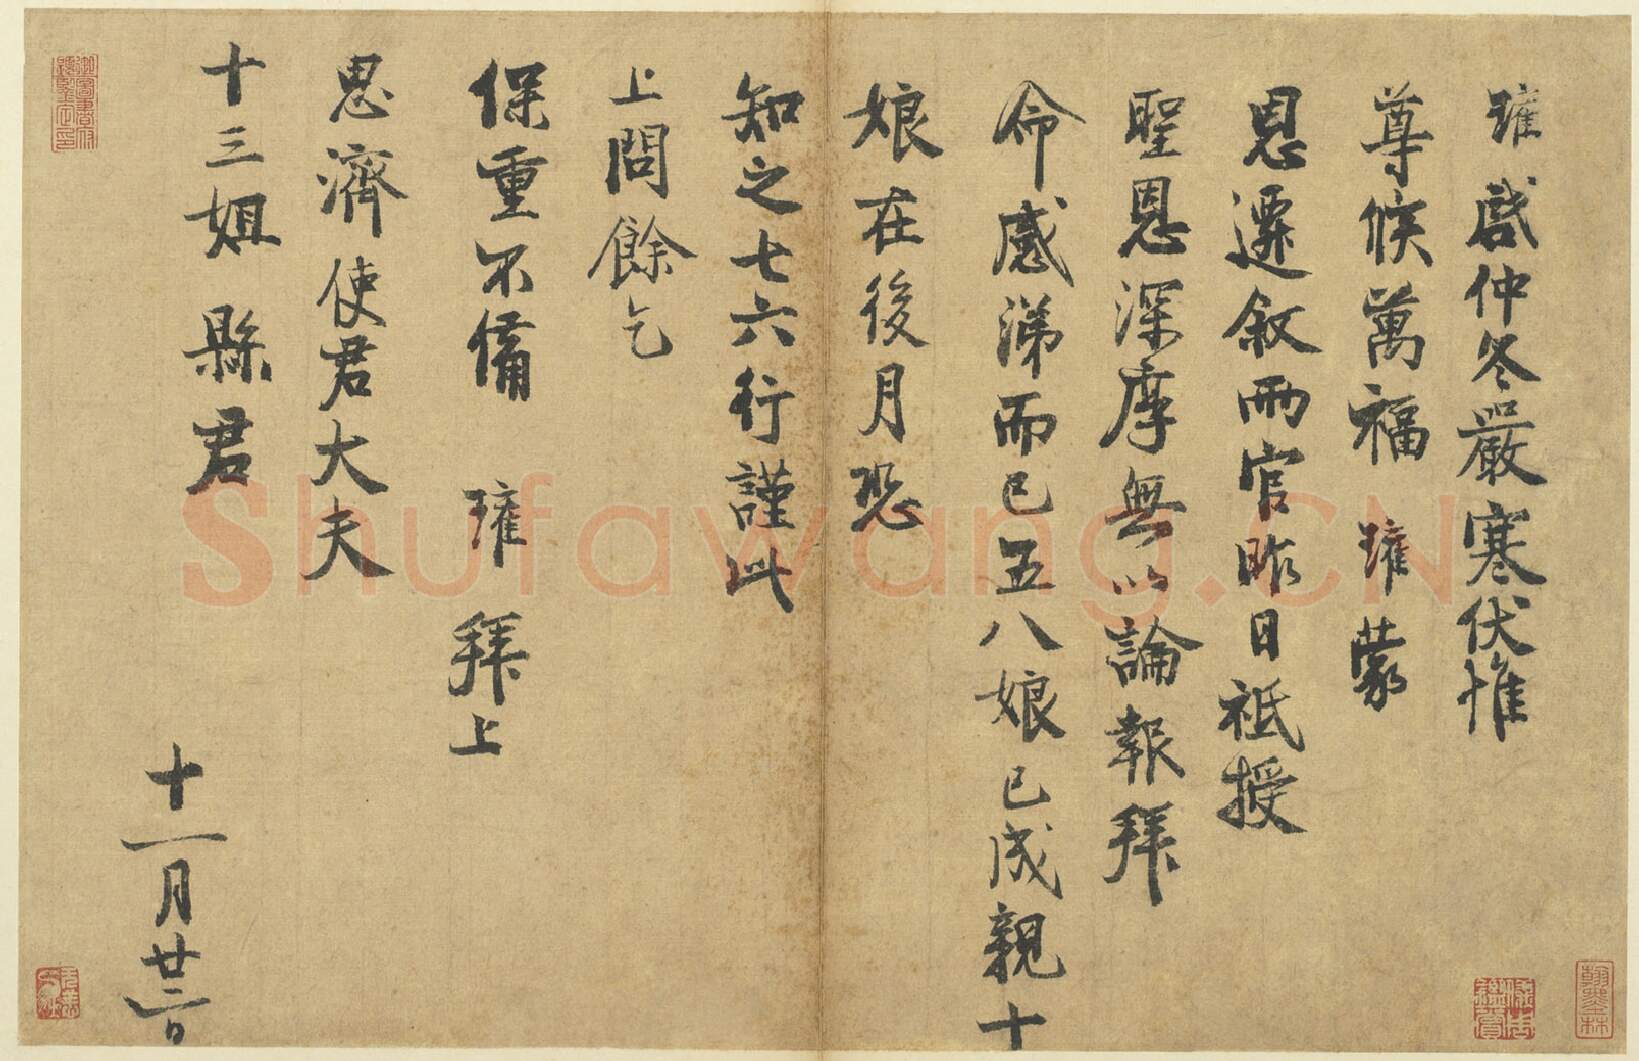 瓘啓仲冬嚴寒伏惟
尊候萬福瓘蒙
恩遷叙兩官昨日祗授
聖恩深厚無以論報拜
命感涕而已五八娘已成親十
娘在後月恐
知之七六行謹此
上問餘乞
保重不備瓘拜上
思濟使君大夫
十三姐縣君
十一月廿二日
Shufawang.CN